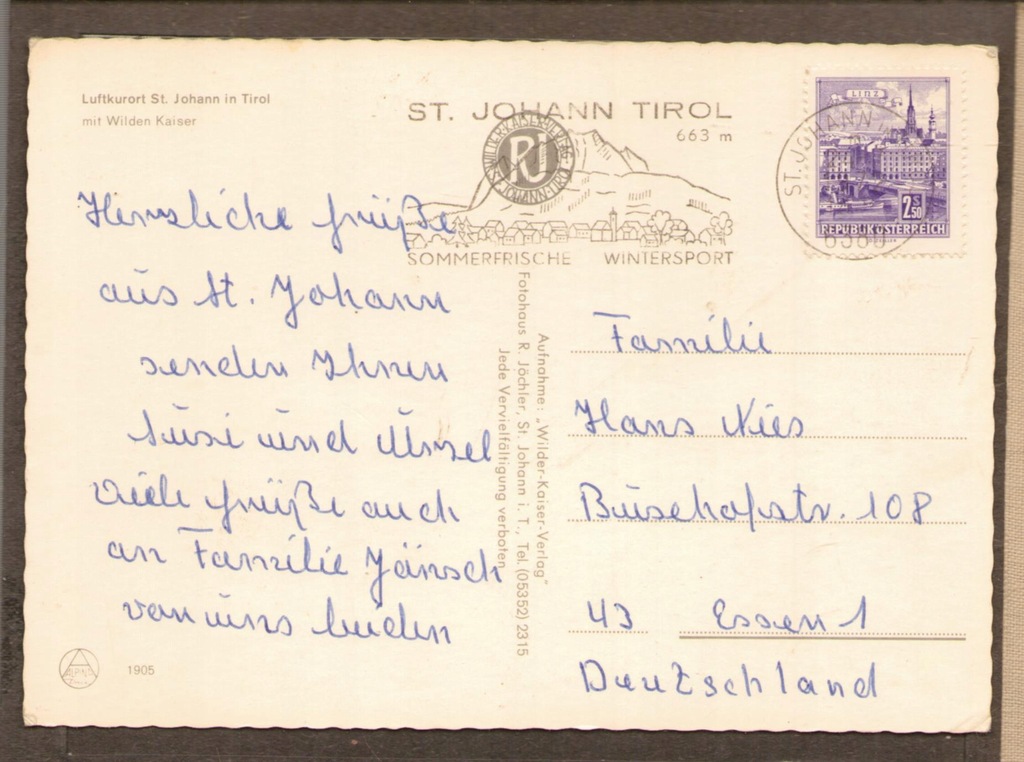 Luftkurort St. Johann in Tirol
mit Wilden Kaiser
ST. JOHANN TIROL
663 m
WILDER-KAISER-VERLAG
RJ
ST. JOHANN-TIROL
SOMMERFRISCHE WINTERSPORT
LINZ
2.50 S
REPUBLIK ÖSTERREICH
ST. JOHANN
6380
Herzliche Grüße
aus St. Johann
senden Ihnen
Susi und Ursel
viele Grüße auch
an Familie Jänsch
von uns beiden
Aufnahme: „Wilder-Kaiser-Verlag"
Fotohaus R. Jöchler, St. Johann i. T., Tel. (05352) 2315
Jede Vervielfältigung verboten
Familie
Hans Nies
108
43 Essen 1
Deutschland
ALPINA
1905